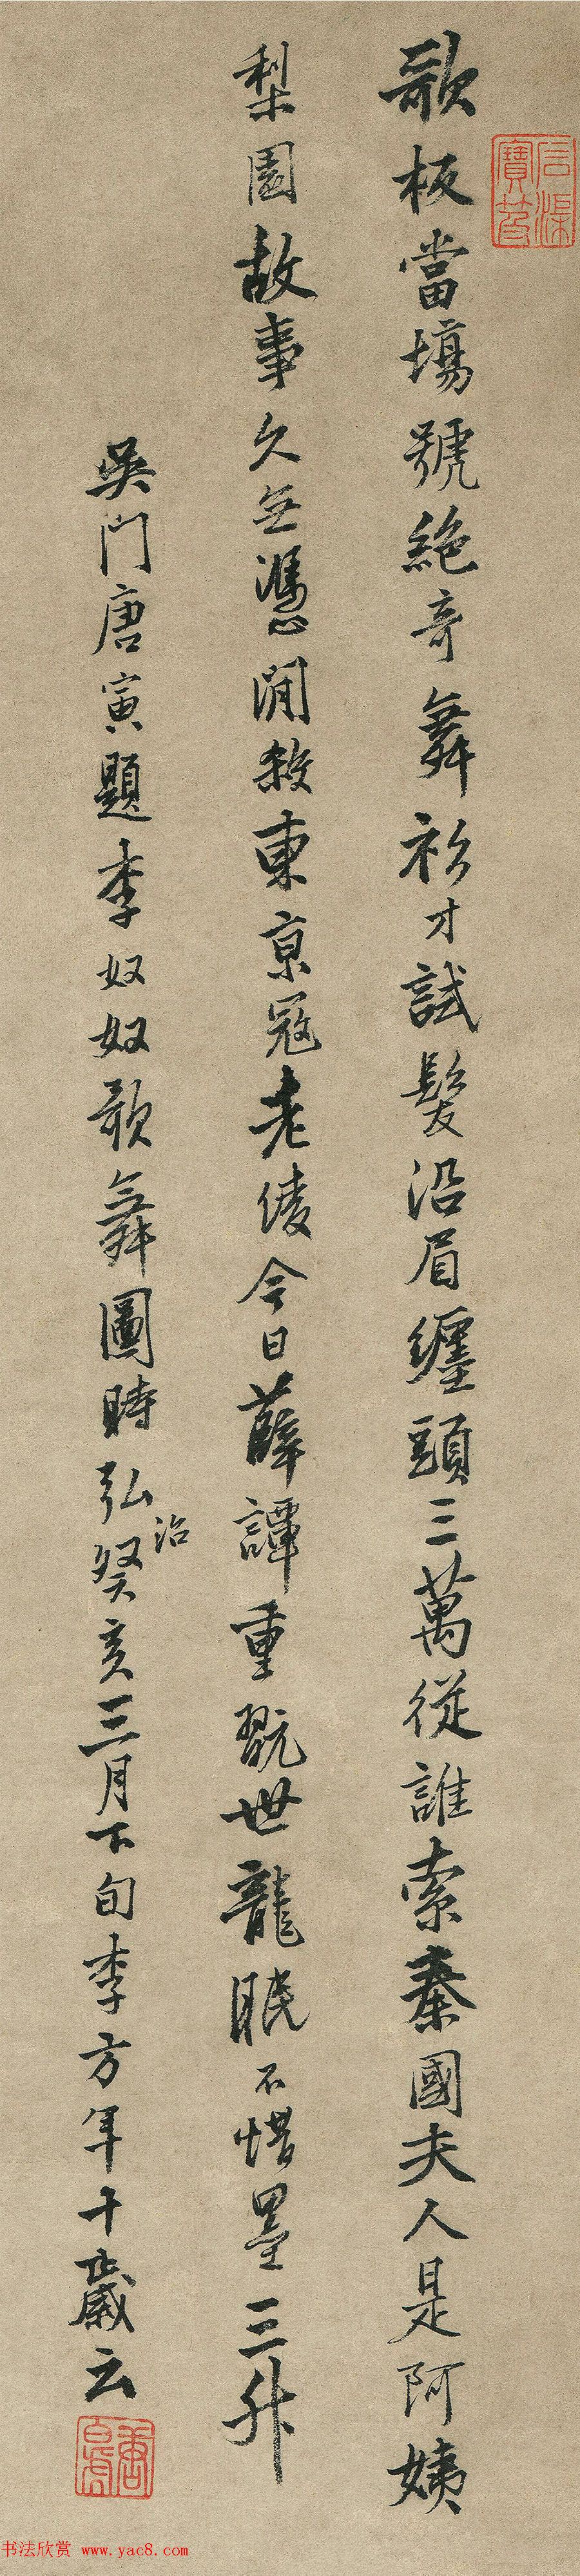 歌板當場號絕奇舞衫才試髮沿眉纏頭三萬從誰索秦國夫人是阿姨
梨園故事久無憑閒殺東京冠老倰今日薛譚重翫世龍眠不惜墨三升
吳門唐寅題李奴奴歌舞圖時弘治癸亥三月下旬李方年十歲云
唐白虎
书法欣赏 www.yac8.com